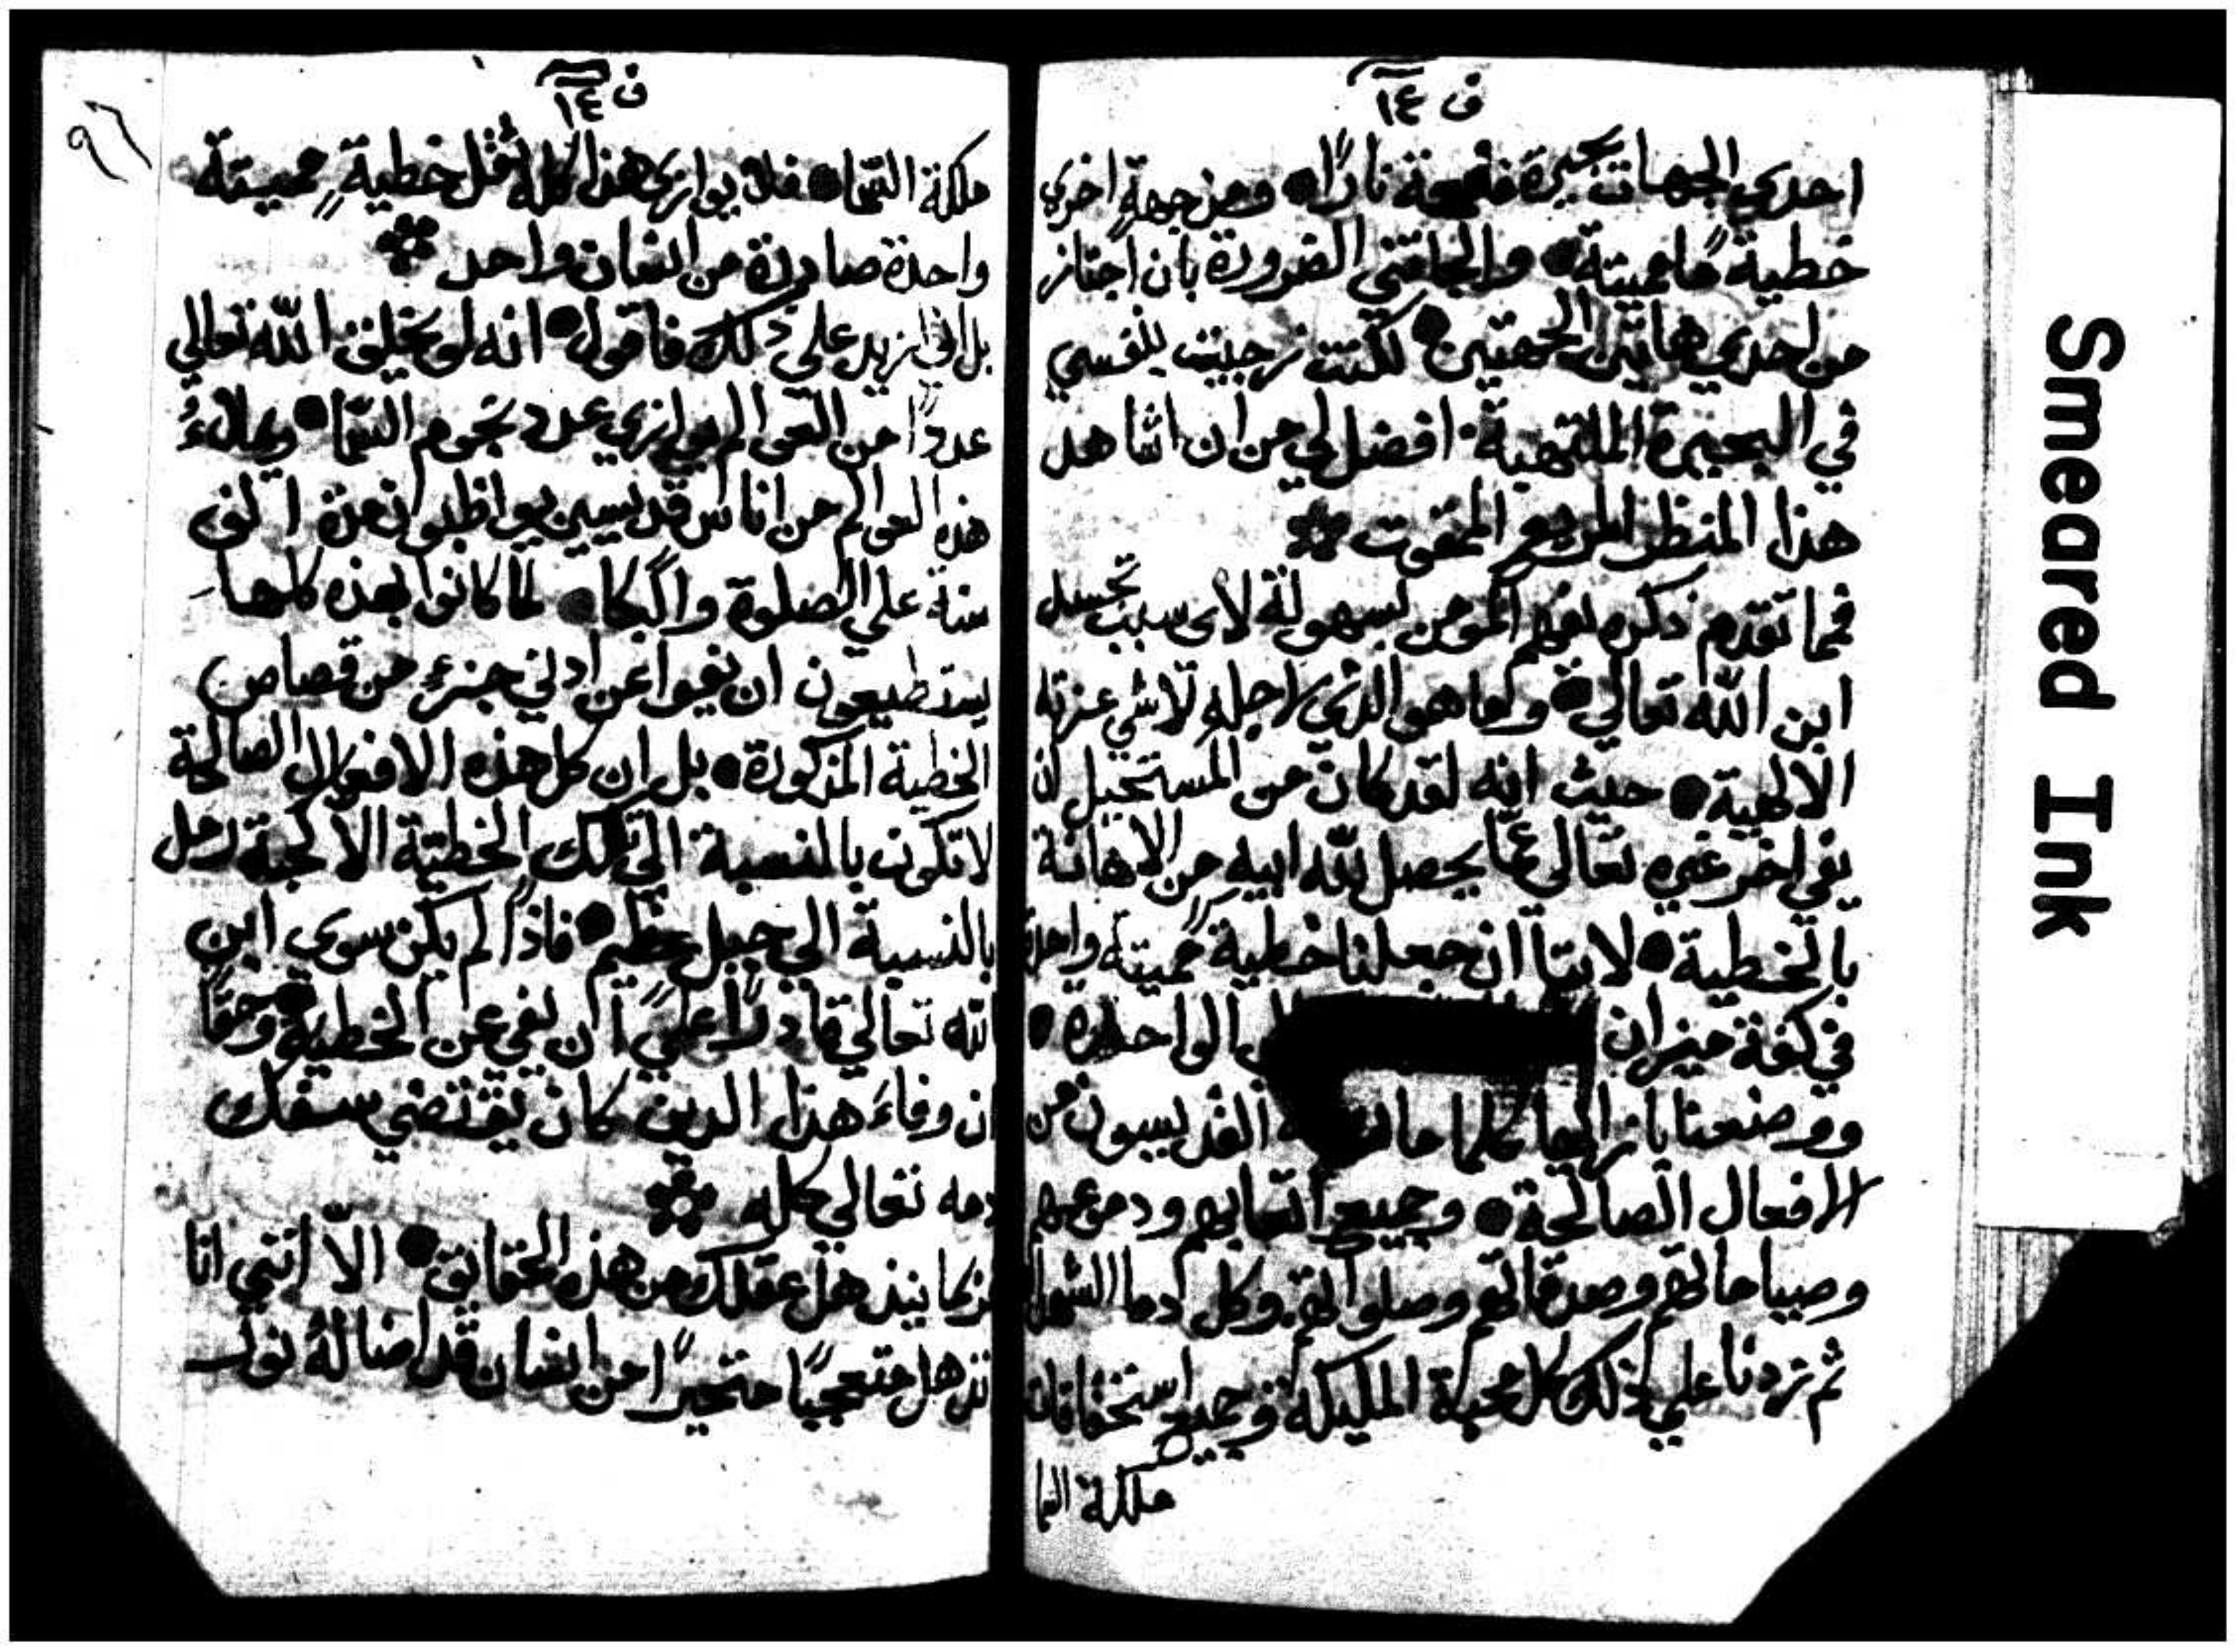 ف ١٤
احدي الجهات بحيرة مفعمة نارًا ومن جهةٍ اخري
خطية ما مميتة والجاتني الضرورة بان اجتاز
من احدي هاتين الجهتين لكنت زجيت بنفسي
في البحيرة الملتهبة افضل لي من ان اشاهد
هذا المنظر المريع الممقوت
فمما تقدم ذكره يفهم المومن بسهولة لاى سبب تجسد
ابن الله تعالي وما هو الذي لاجله تلاشي عزته
الالهية حيث انه لقد كان من المستحيل ان
يفي اخر غيره تعالي عما يحصل لله ابيه من الاهانة
بالخطية لاننا ان جعلنا خطية مميتة واحدة
في كفة ميزان الواحدة
ووضعنا بازاايها كلما القديسون من
الافعال الصالحة وجميع اتعابهم ودموعهم
وصياماتهم وصدقاتهم وصلواتهم وكل دما الشهدا
ثم زدنا علي ذلك كل محبة المليكة وجميع استحقاقات
ملكة السما
ف ١٤
٩٦
ملكة السّما فلا يوازي هذا كله ثقل خطيةٍ مميتة
واحدة صادرة من انسان واحد
بل اني ازيد علي ذلك فاقول انه لو يخلق الله تعالي
عددًا من العوالم يوازي عدد نجوم السّما ويملاءُ
هذه العوالم من اناس قديسين يواظبوا مدة الف
سنة علي الصلوة والبكا لما كانوا بهذه كلها
يستطيعون ان يفيوا عن ادني جزءٍ من قصاص
الخطية المذكورة بل ان كل هذه الافعال الصالحة
لا تكون بالنسبة الي تلك الخطية الا كحبة رمل
بالنسبة الي جبل عظيم فاذًا لم يكن سوى ابن
الله تعالي قادرًا علي ان يفي عن الخطية وحقًا
ان وفاءَ هذا الدين كان يقتضي سفك
دمه تعالي كله
فربما ينذهل عقلك من هذه الحقايق الّا انني انا
انذهل متعجبًا متحيرًا من انسان قد اضا له نور
Smeared Ink